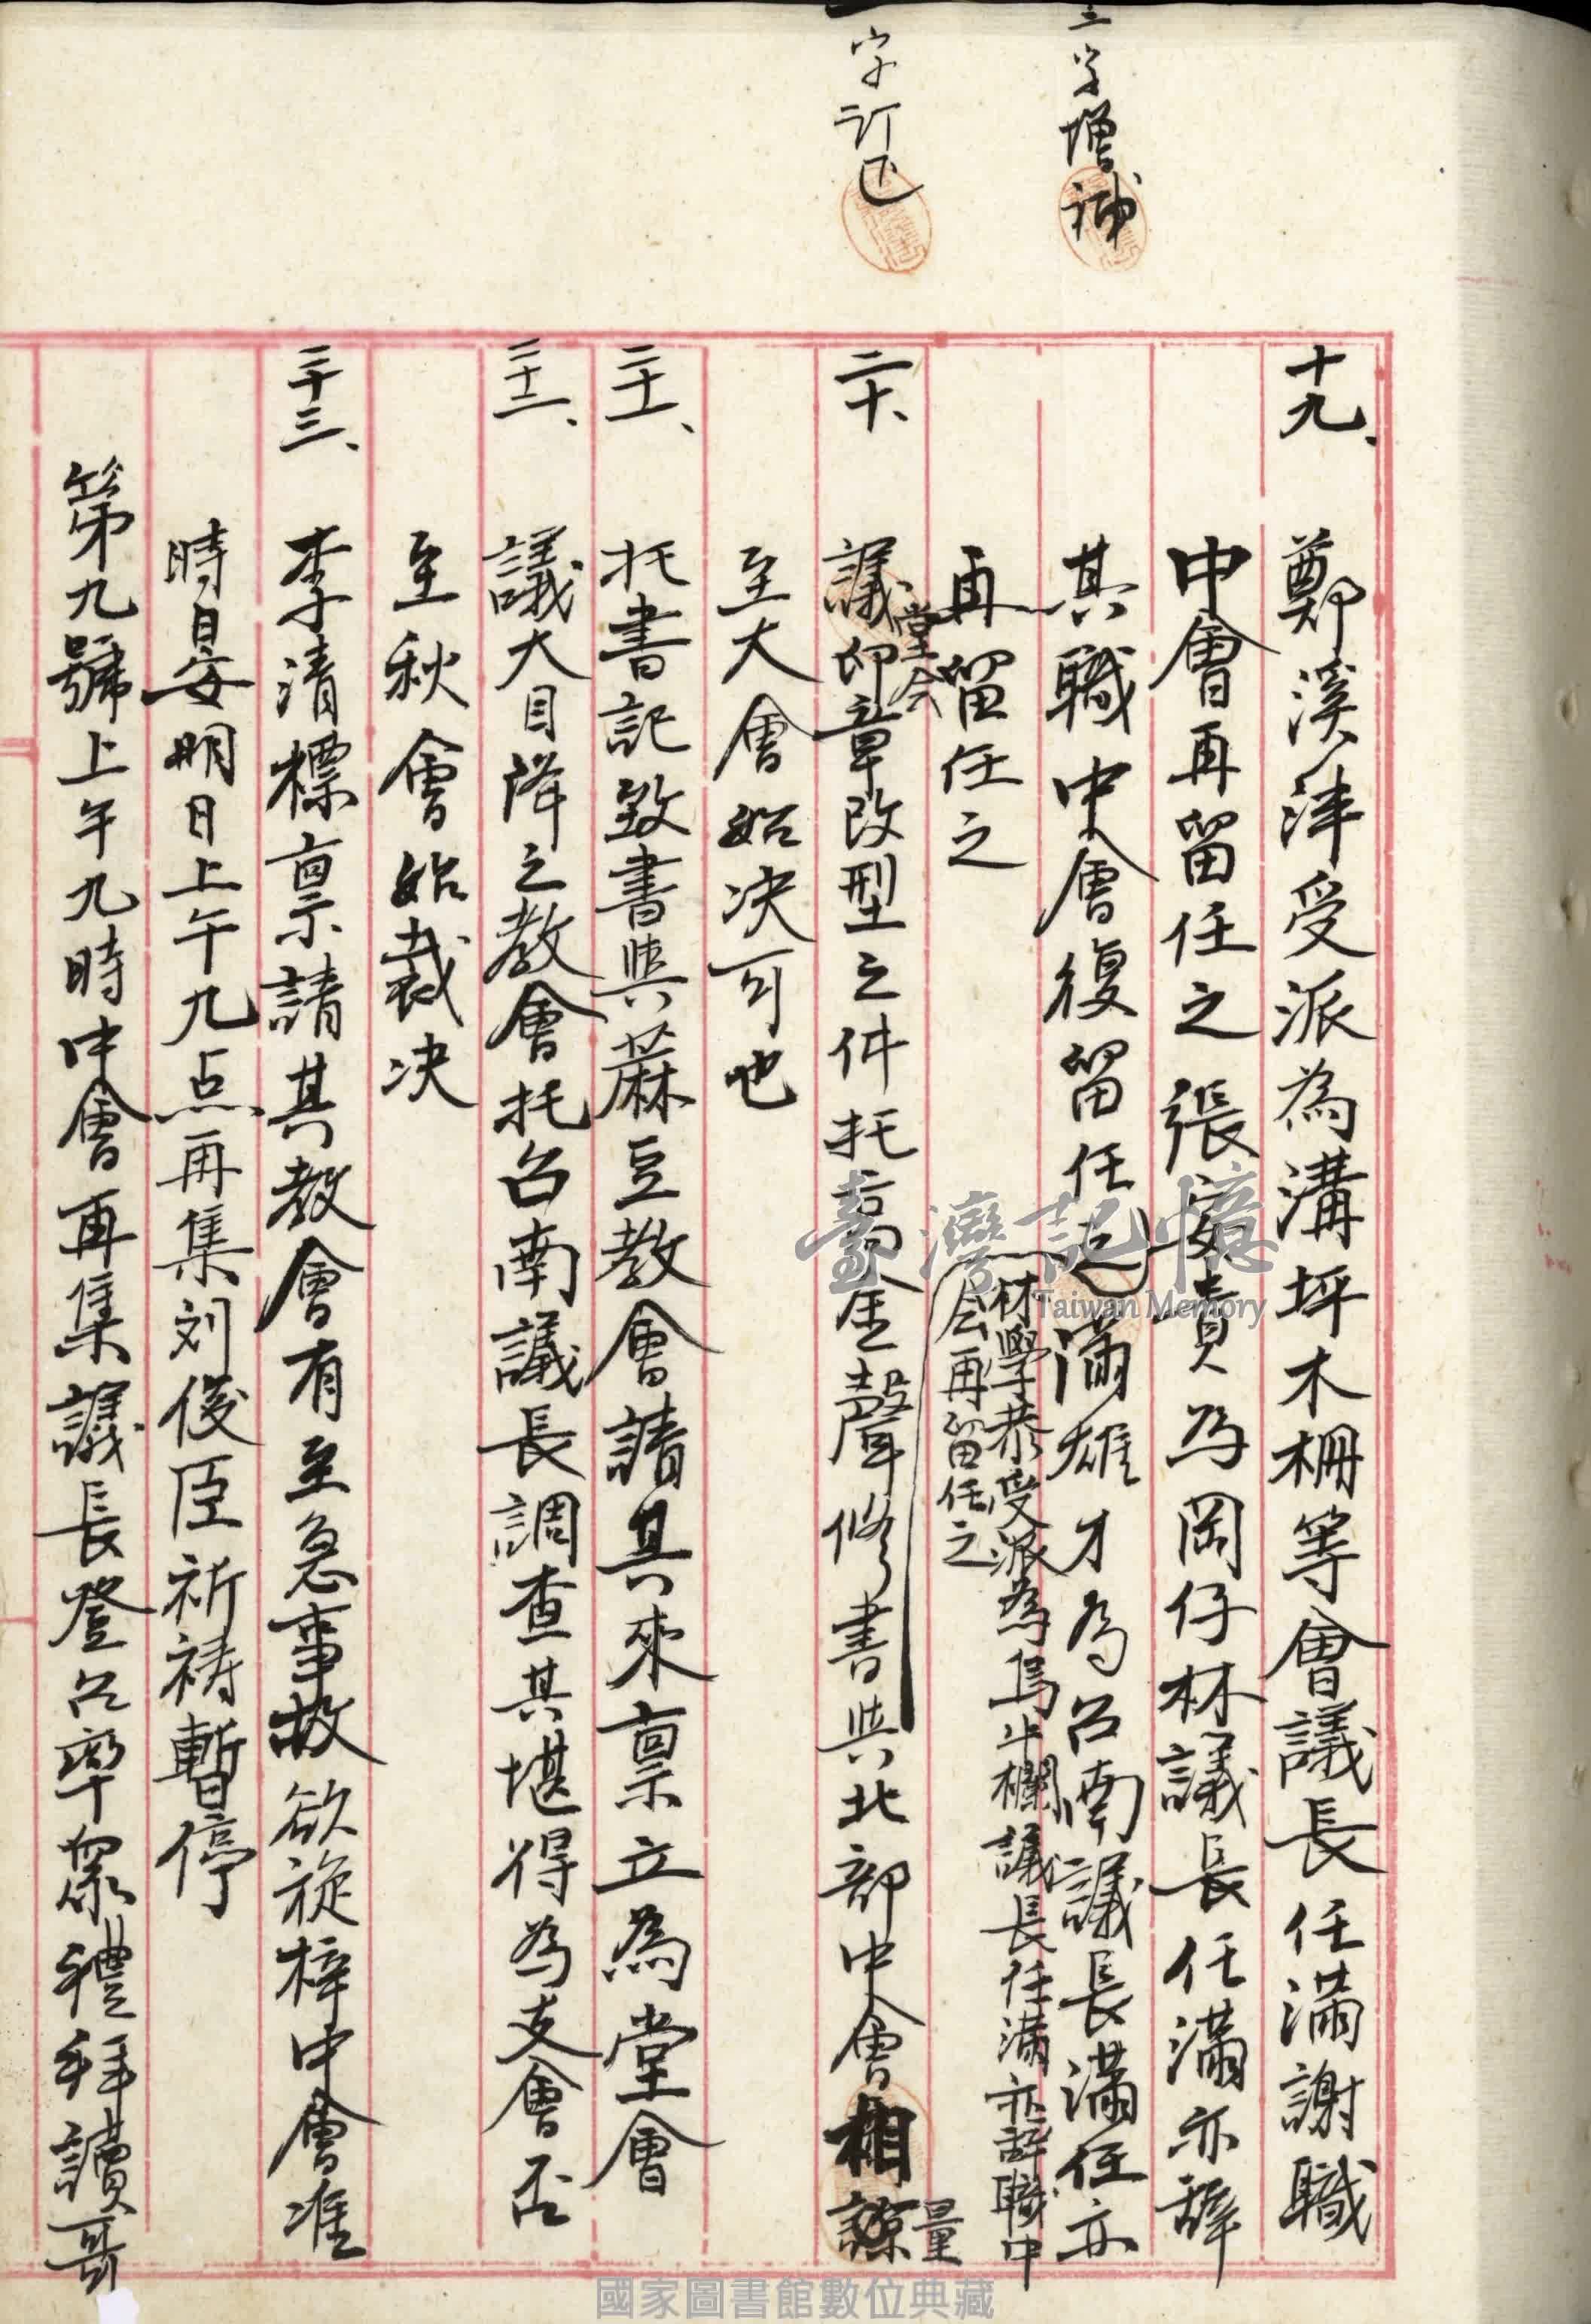 三字增補
一字訂正
十九、鄭溪泮受派為溝坪木柵等會議長任滿謝職
中會再留任之 張安貴為岡仔林議長任滿亦辞
其職中會復留任之滿雄才為召南議長滿任亦
林學恭受派為烏牛欄議長任滿亦辞職中
会再留任之
再留任之
二十、議印章改型之件托高金聲修書與北部中會相諒
堂会
量
至大會始决可也
二十一、托書記致書與蔴豆教會請其來稟立為堂會
二十二、議大目降之教會托召南議長調查其堪得為支會否
至秋會始裁决
二十三、李清標稟請其教會有至急事故欲旋梓中會准
時日晏明日上午九点再集刘俊臣祈禱暫停
第九號上午九時中會再集議長登位率眾禮拜讀哥
臺灣記憶
Taiwan Memory
國家圖書館數位典藏